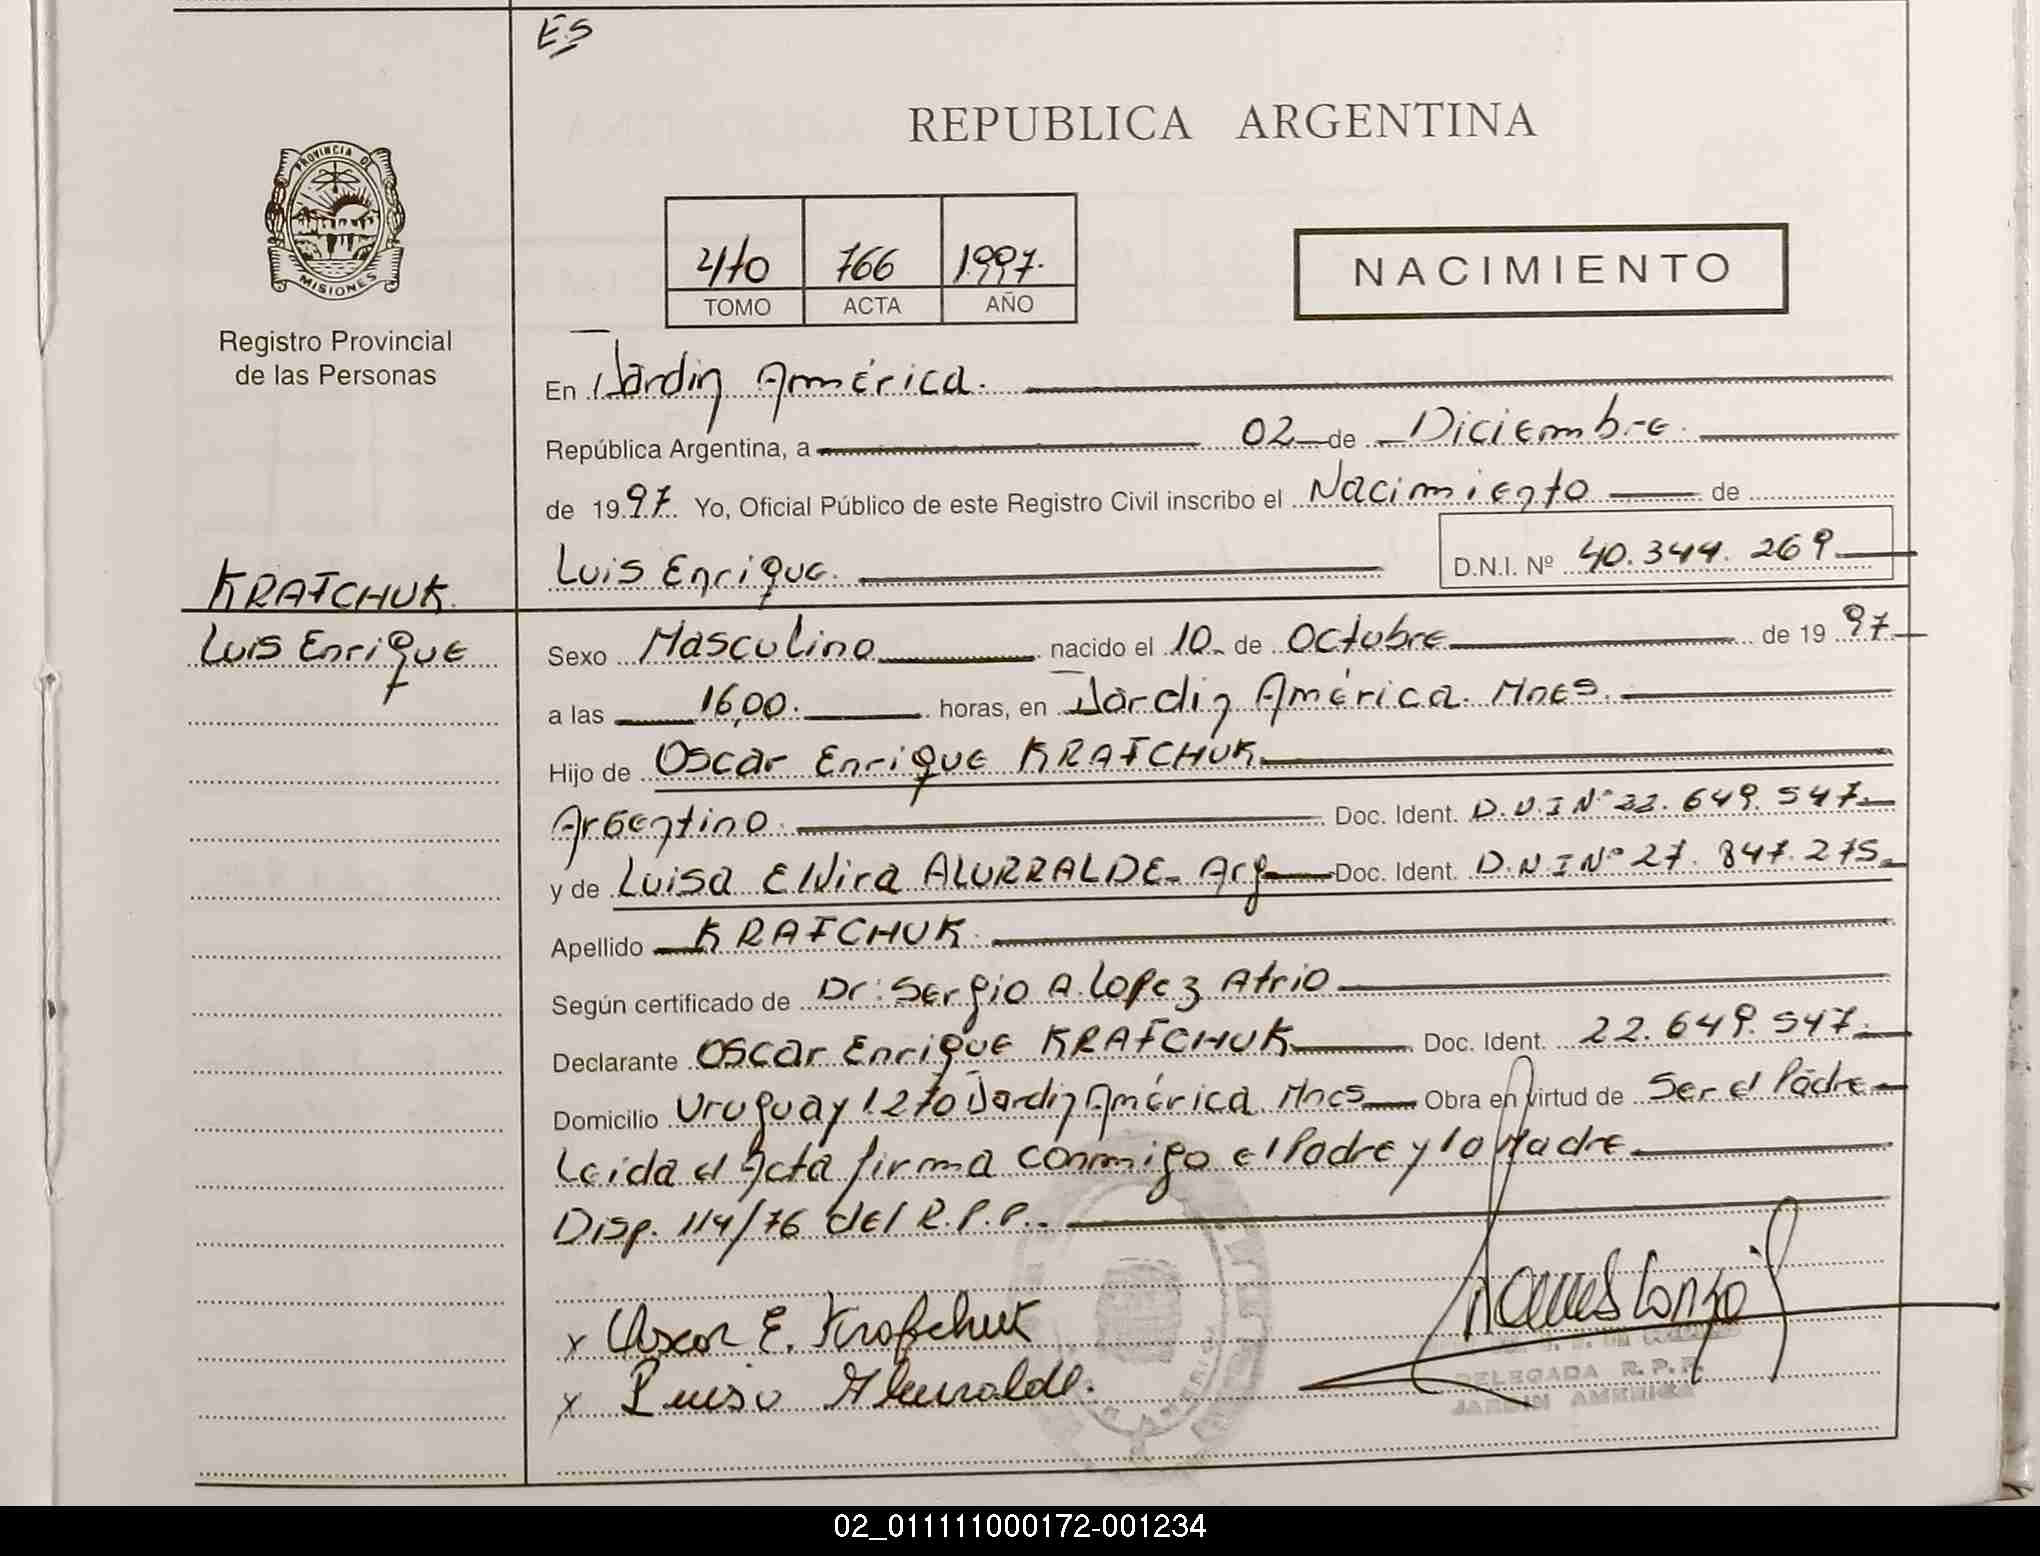 ES
REPUBLICA ARGENTINA
PROVINCIA DE
MISIONES
Registro Provincial
de las Personas
4to 766 1.997.
TOMO ACTA AÑO
NACIMIENTO
En Jardin América.
República Argentina, a 02 de Diciembre.
de 1997. Yo, Oficial Público de este Registro Civil inscribo el Nacimiento de
Luis Enrique. D.N.I. Nº 40.344.269
KRAFCHUK.
Luis Enrique
Sexo Masculino nacido el 10 de Octubre de 1997
a las 16,00. horas, en Jardin América. Mnes.
Hijo de Oscar Enrique KRAFCHUK
Argentino. Doc. Ident. D.N.I Nº 22.649.547.
y de Luisa Elvira ALURRALDE. Arg Doc. Ident. D.N.I Nº 27.847.275.
Apellido KRAFCHUK.
Según certificado de Dr: Sergio A. Lopez Atrio
Declarante Oscar Enrique KRAFCHUK Doc. Ident. 22.649.547.
Domicilio Uruguay 1.270 Jardin América Mnes Obra en virtud de Ser el Padre
Leida el Acta firma conmigo el Padre y la Madre
Disp. 114/76 del R.P.P.
x Oscar E. Krafchuk
x Luisa Alurralde.
DELEGADA R.P.P.
JARDIN AMERICA
02_011111000172-001234